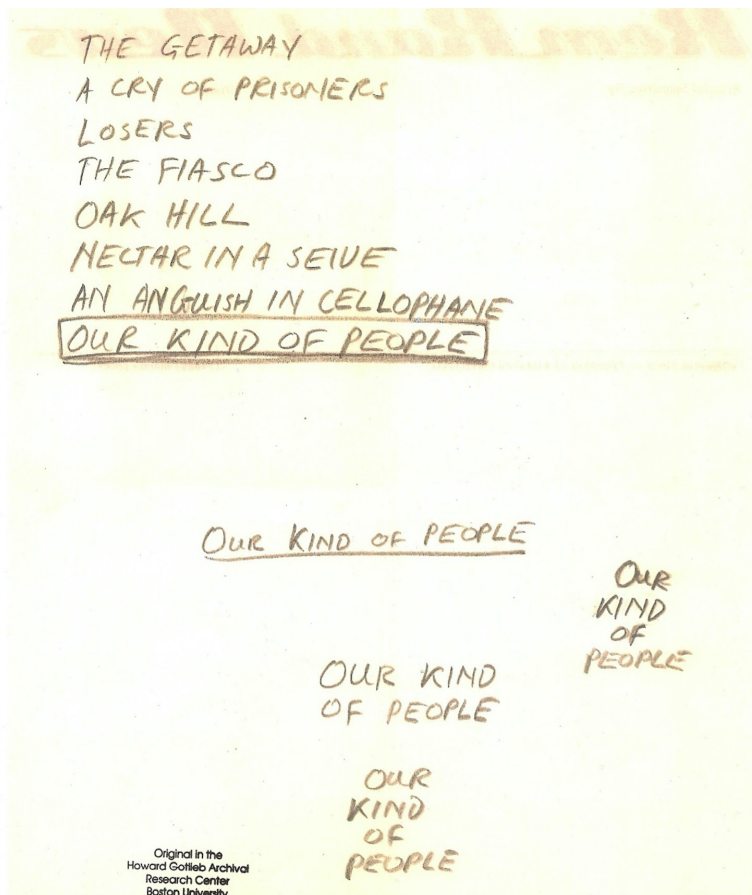 THE GETAWAY
A CRY OF PRISONERS
LOSERS
THE FIASCO
OAK HILL
NECTAR IN A SEIVE
AN ANGUISH IN CELLOPHANE
OUR KIND OF PEOPLE
OUR KIND OF PEOPLE
OUR
KIND
OF
PEOPLE
OUR KIND
OF PEOPLE
OUR
KIND
OF
PEOPLE
Original in the
Howard Gotlieb Archival
Research Center
Boston University